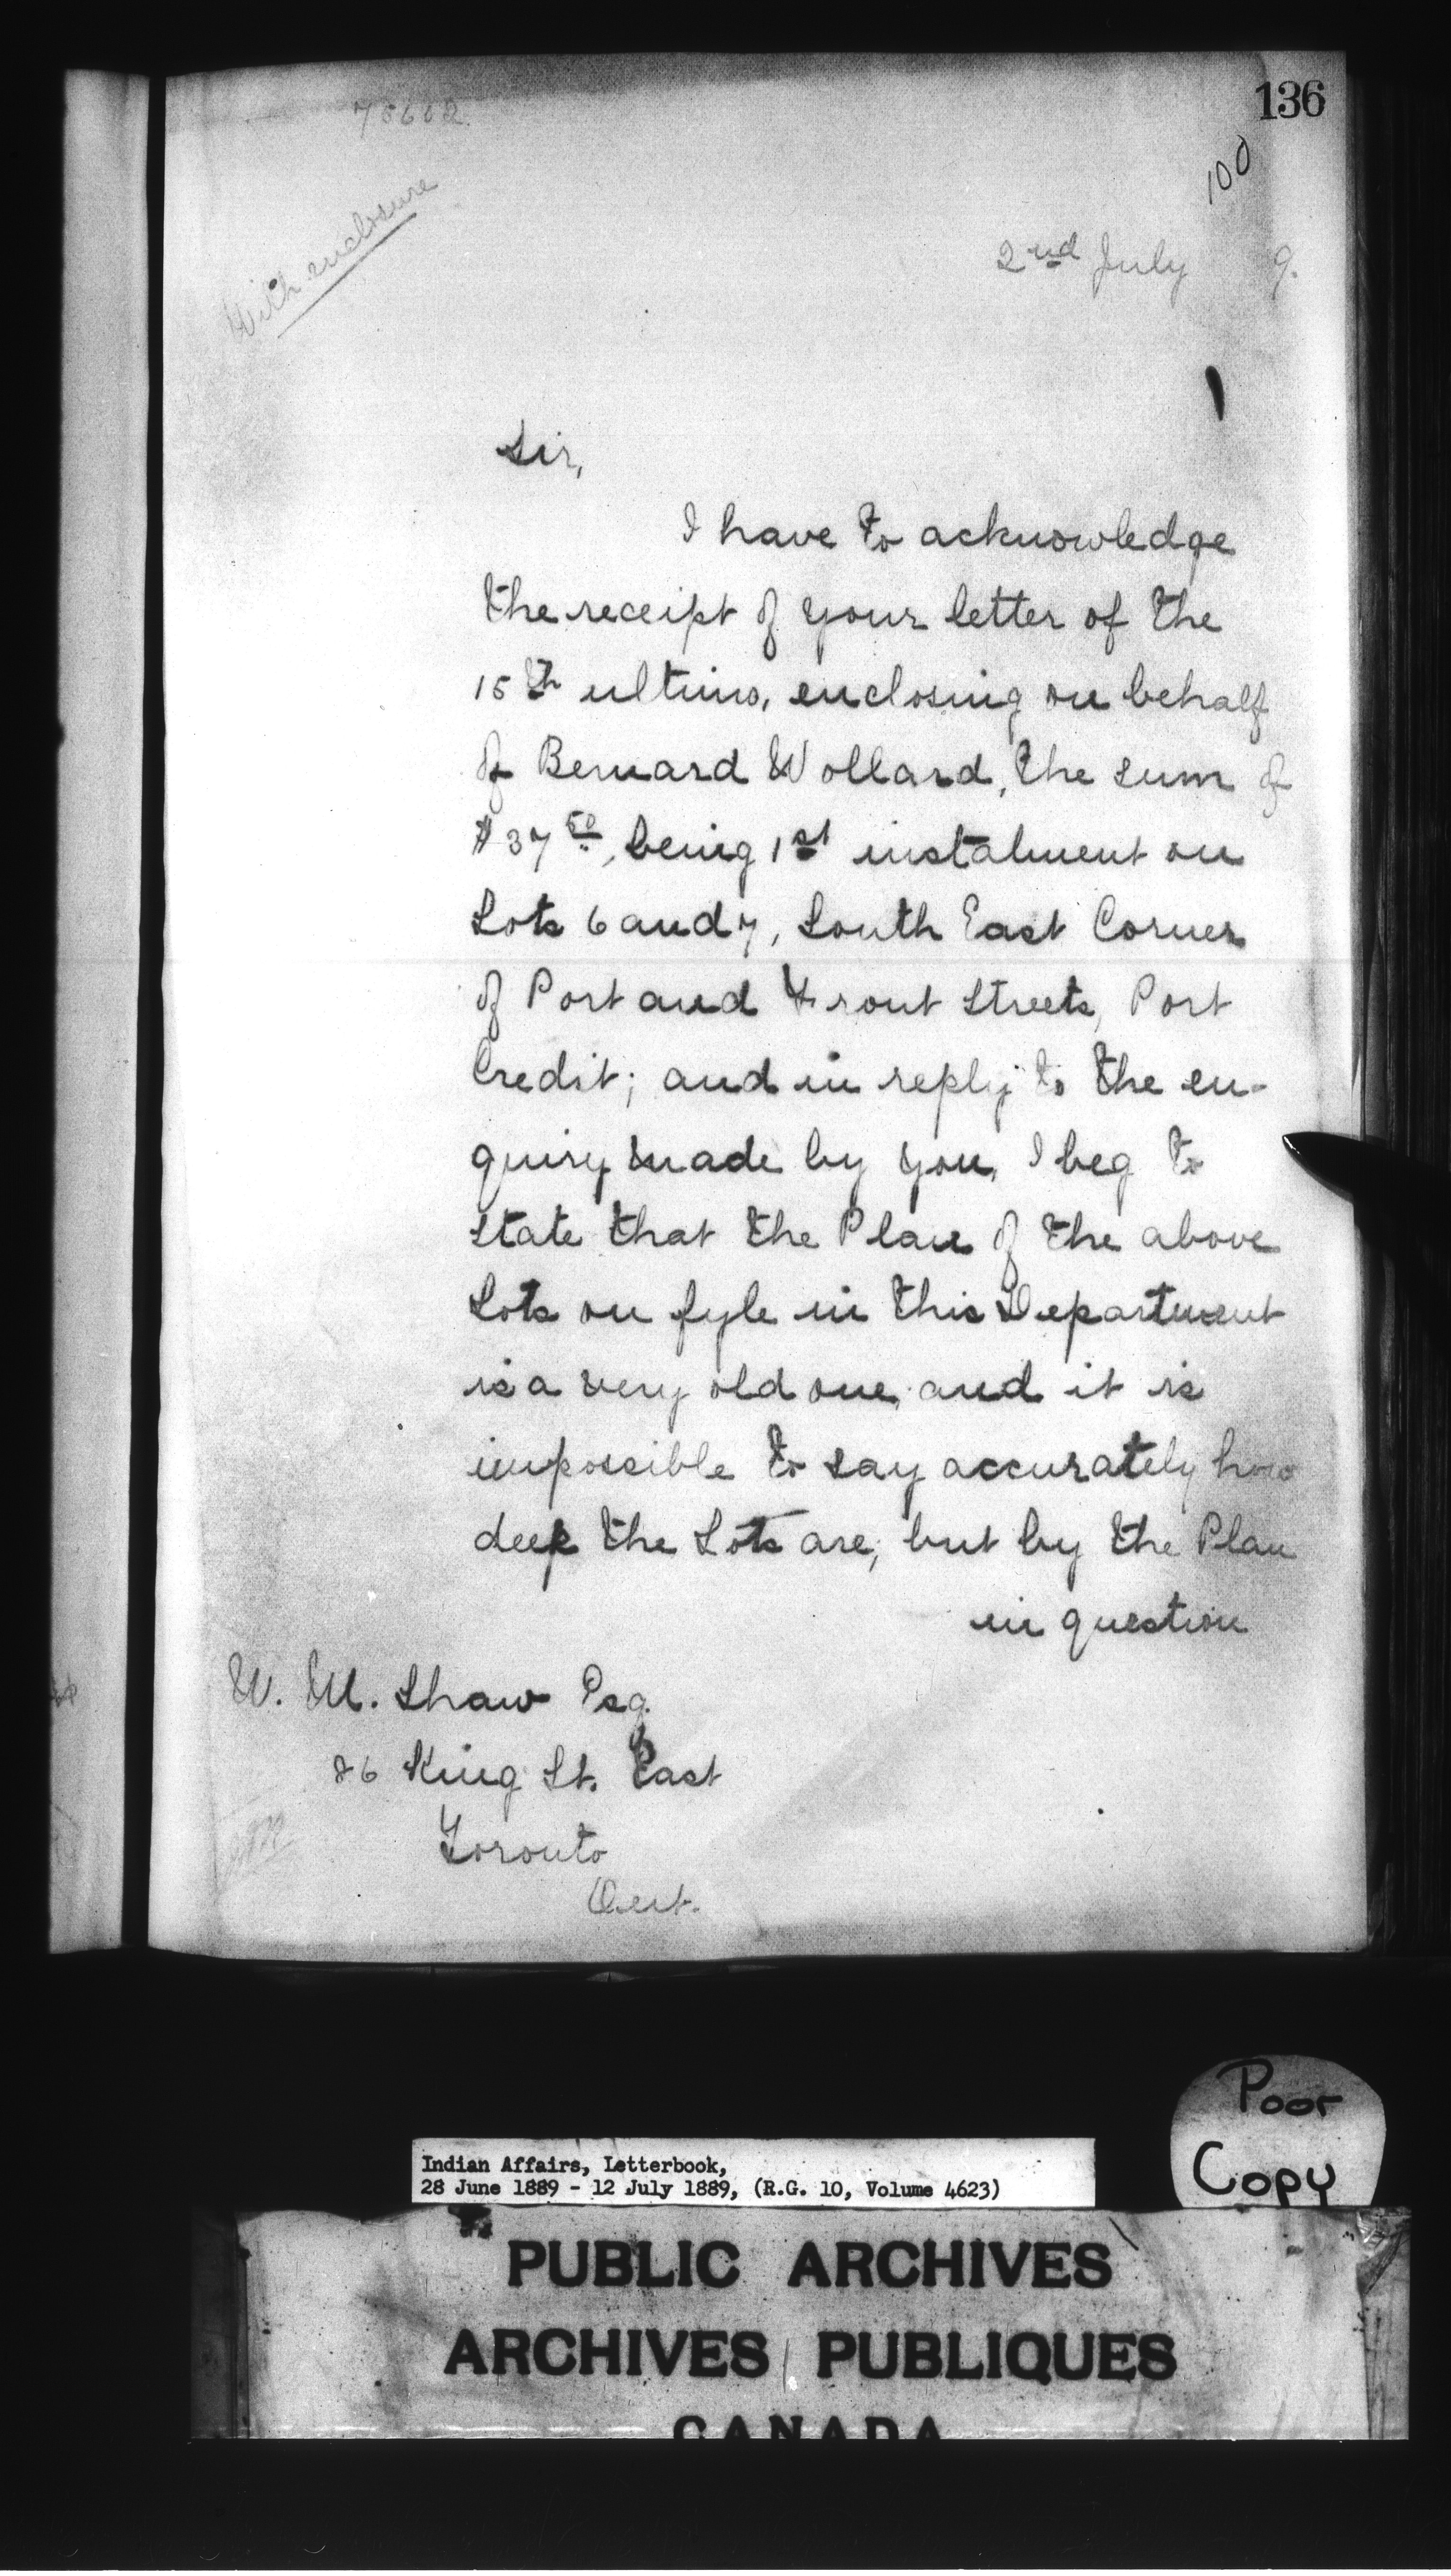 136
75602
100
With enclosure
2nd July 9.
Sir,
I have to acknowledge
the receipt of your letter of the
15th ultimo, enclosing on behalf
of Bernard Wollard, the sum of
$37 50, being 1st instalment on
Lots 6 and 7, South East Corner
of Port and Front Streets, Port
Credit; and in reply to the en-
quiry made by you, I beg to
state that the Plan of the above
Lots on fyle in this Department
is a very old one, and it is
impossible to say accurately how
deep the Lots are; but by the Plan
in question
W. M. Shaw Esq.
26 King St. East
Toronto
Ont.
Poor
Copy
Indian Affairs, Letterbook,
28 June 1889 - 12 July 1889, (R.G. 10, Volume 4623)
PUBLIC ARCHIVES
ARCHIVES PUBLIQUES
CANADA